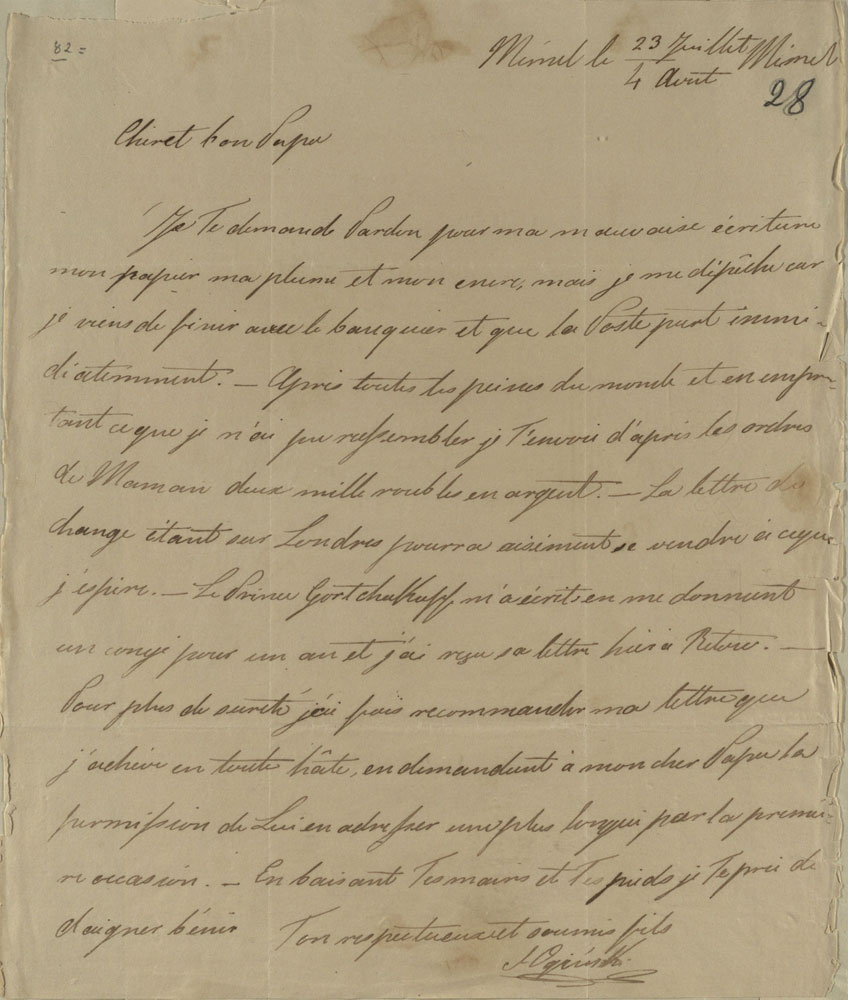 82=
Memel le 23 Juillet Memel
4 Août
28
Cher et bon Papa
Je Te demande Pardon pour ma mauvaise écriture
mon papier ma plume et mon encre, mais je me dépêche car
je viens de finir avec le banquier et que la Poste part immé-
diatemment. — Après toutes les peines du monde et en empr-
tant ce que je n'ai pu rassembler je T'envoie d'après les ordres
de Maman deux mille roubles en argent. — La lettre de
change étant sur Londres pourra aisément se vendre à ce que
j'espère. — Le Prince Gortchakoff m'a écrit en me donnant
un congé pour un an et j'ai reçu sa lettre hier à Retow. —
Pour plus de sureté j'ai fais recommander ma lettre que
j'achève en toute hâte, en demandant à mon cher Papa la
permission de Lui en adresser une plus longue par la premiè-
re occasion. — En baisant Tes mains et Tes pieds je Te prie de
daigner bénir
Ton respectueux et soumis fils
Oginski